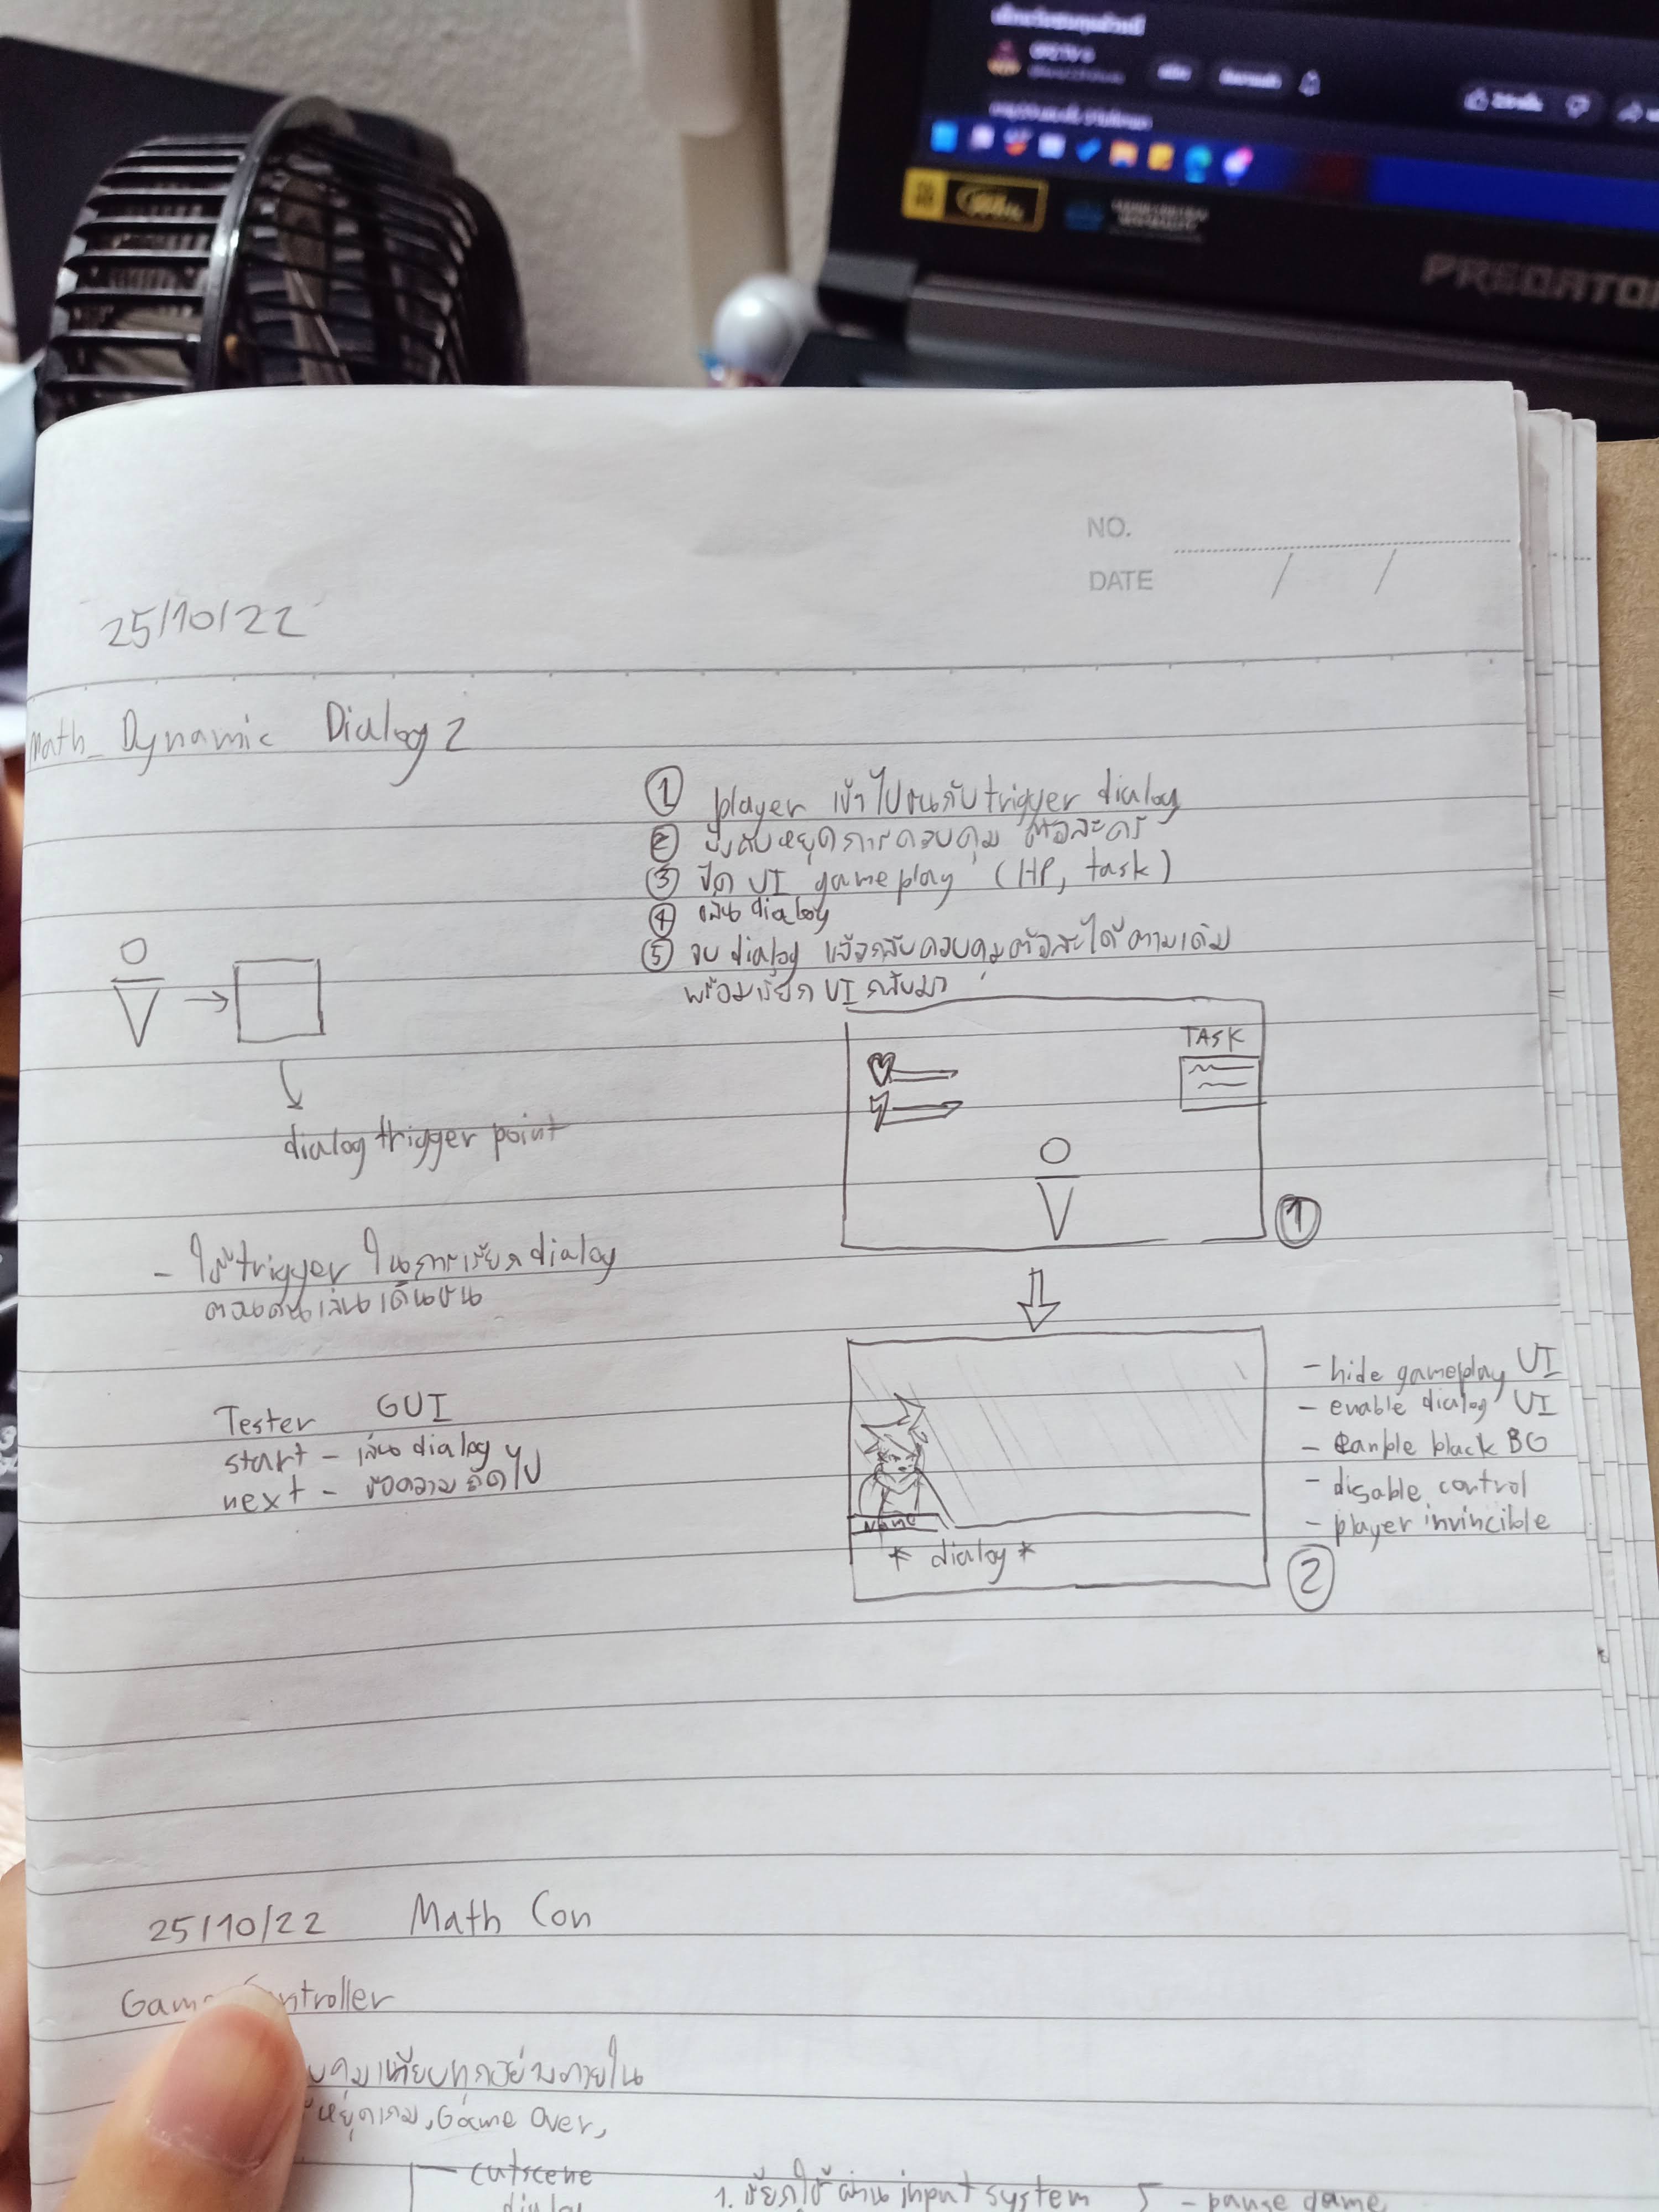 NO.
DATE / /
25/10/22
Math_Dynamic Dialog 2
① player เข้าไปชนกับ trigger dialog
② บังคับหยุดการควบคุม ตัวละคร
③ ปิด UI gameplay (HP, task)
④ เล่น dialog
⑤ จบ dialog แล้วกลับควบคุมตัวละได้ตามเดิม
พร้อมเรียก UI กลับมา
dialog trigger point
TASK
①
- ใช้ trigger ในการเรียก dialog
ตอนคนเล่นเดินชน
Tester GUI
start - เล่น dialog
next - ข้อความถัดไป
- hide gameplay UI
- enable dialog UI
- black BG
- disable control
- player invincible
Name
* dialog *
②
25/10/22 Math Con
Game ntroller
บคุมเกือบทุกอย่างภายใน
หยุดเกม, Game Over,
cutscene
dialog
1. เรียกใช้ผ่าน input system
- pause game
PREDATOR